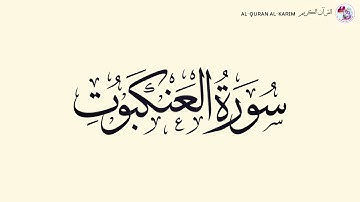 AL-QURAN AL-KARIM القرآن الكريم
سُورَةُ العَنكَبُوتِ